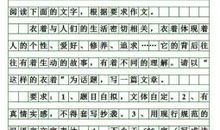 阅读下面的文字，根据要求作文。
衣着与人们的生活密切相关，衣着体现着
人的个性、爱好、修养、追求……它的背后往
往有着生动的故事，有着难忘的回忆。请以“
这样的衣着”为话题，写一篇文章。
要求：1、题目自拟，文体自定。2、有
真情实感，不得套写抄袭。3、用现代